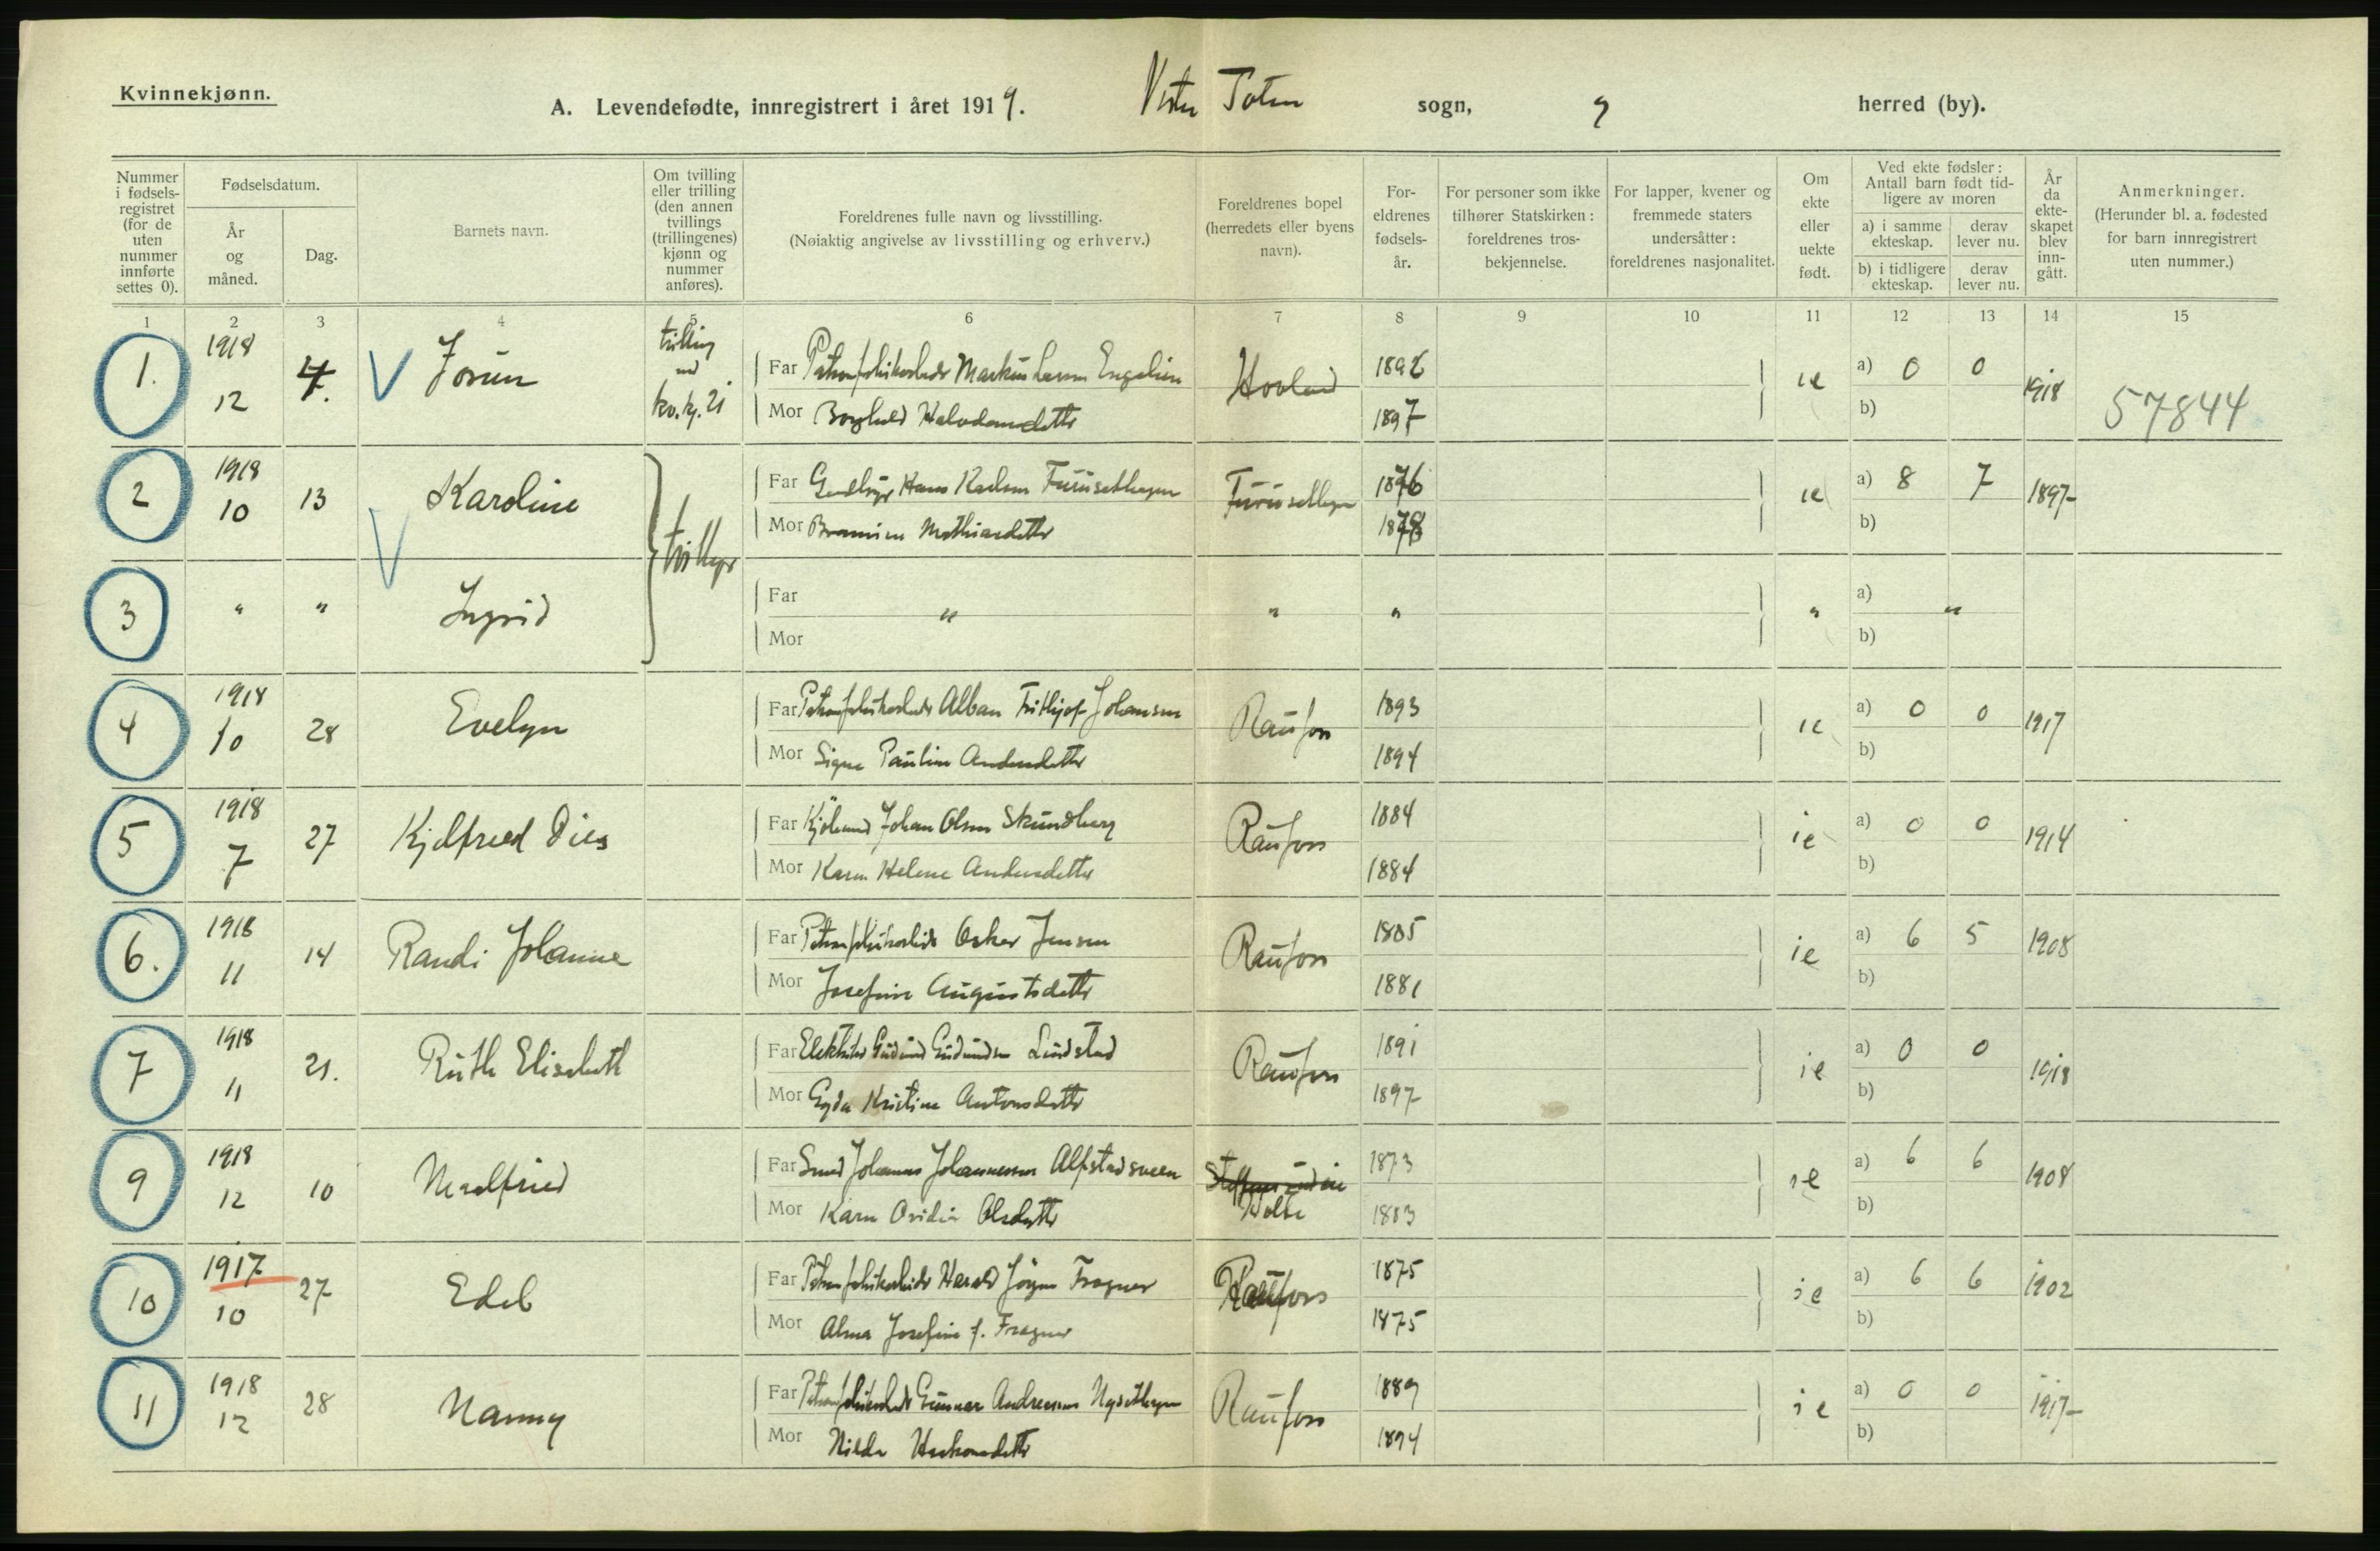 Kvinnekjønn.
A. Levendefødte, innregistrert i året 1919. Vestre Toten sogn, herred (by).
Nummer i fødsels-registret (for de uten nummer innførte settes 0).
Fødselsdatum.
År og måned.
Dag.
Barnets navn.
Om tvilling eller trilling (den annen tvillings (trillingenes) kjønn og nummer anføres).
Foreldrenes fulle navn og livsstilling.
(Nøiaktig angivelse av livsstilling og erhverv.)
Foreldrenes bopel (herredets eller byens navn).
For-eldrenes fødsels-år.
For personer som ikke tilhører Statskirken: foreldrenes tros-bekjennelse.
For lapper, kvener og fremmede staters undersåtter: foreldrenes nasjonalitet.
Om ekte eller uekte født.
Ved ekte fødsler: Antall barn født tid-ligere av moren
a) i samme ekteskap.
derav lever nu.
b) i tidligere ekteskap.
derav lever nu.
År da ekte-skapet blev inn-gått.
Anmerkninger.
(Herunder bl. a. fødested for barn innregistrert uten nummer.)
1 2 3 4 5 6 7 8 9 10 11 12 13 14 15
1. 1918 12 4. Jorun tvilling med kv.kj. 21
Far Markus Larsen Engelien Hovland 1892 ie a) 0 0 1918 57844
Mor Borghild Halvdansdatter 1897 b)
2 1918 10 13 Karoline tvillinger
Far Hans Karlsen Furusethagen 1876 ie a) 8 7 1897
Mor Mathiasdatter 1878 b)
3 " " Ingrid
Far " " " " a) "
Mor b)
4 1918 10 28 Evelyn
Far Alban Frithjof Johansen Raufoss 1893 ie a) 0 0 1917
Mor Signe Pauline Andersdatter 1894 b)
5 1918 7 27 Kjelfried Dies
Far Johan Olsen Skundberg Raufoss 1884 ie a) 0 0 1914
Mor Karen Helene Andersdatter 1884 b)
6. 1918 11 14 Randi Johanne
Far Oskar Jensen Raufoss 1885 ie a) 6 5 1908
Mor Josefine Augustsdatter 1881 b)
7 1918 11 21. Ruth Elisabeth
Far Gudmund Gudmundsen Lindstad Raufoss 1891 ie a) 0 0 1918
Mor Gyda Kristine Antonsdatter 1897 b)
9 1918 12 10 Maalfried
Far Smed Johannes Johannessen Alfstadsveen 1873 ie a) 6 6 1908
Mor Karen Ovidia Olsdatter 1883 b)
10 1917 10 27 Edel
Far Harald Jörgen Fragner Raufoss 1875 ie a) 6 6 1902
Mor Alma Josefine f. Fragner 1875 b)
11 1918 12 28 Nanny
Far Gunnar Andreassen Raufoss 1889 ie a) 0 0 1917
Mor Hilda Haakonsdatter 1894 b)